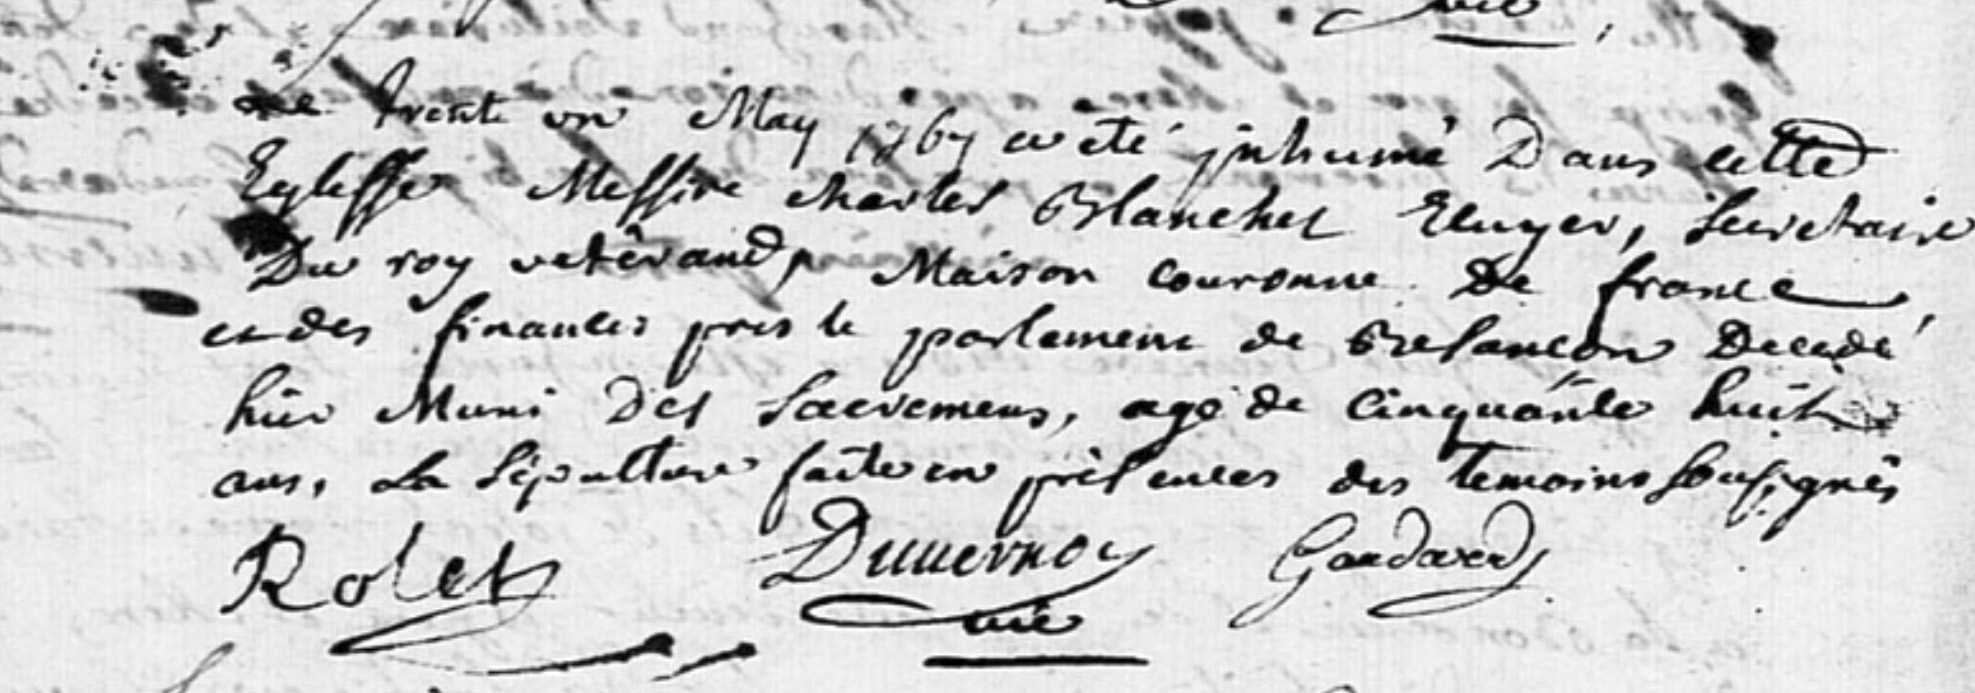 Le trente un May 1767 a été jnhumé Dans cette
Eglesse Messire charles Blanchet Ecuyer, secretaire
Du roy veterand, Maison couronne De france
et des finances pres le parlement de Besançon Decedé
hier Muni Des sacremens, agé de cinquante huit
ans, La sépulture faite en présences des temoins sousignés
Rolet Duvernoy Gaudard